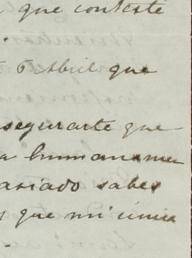 que conteste
6 Abril que
segurarte que
humaname
asiado sabes
que mi única